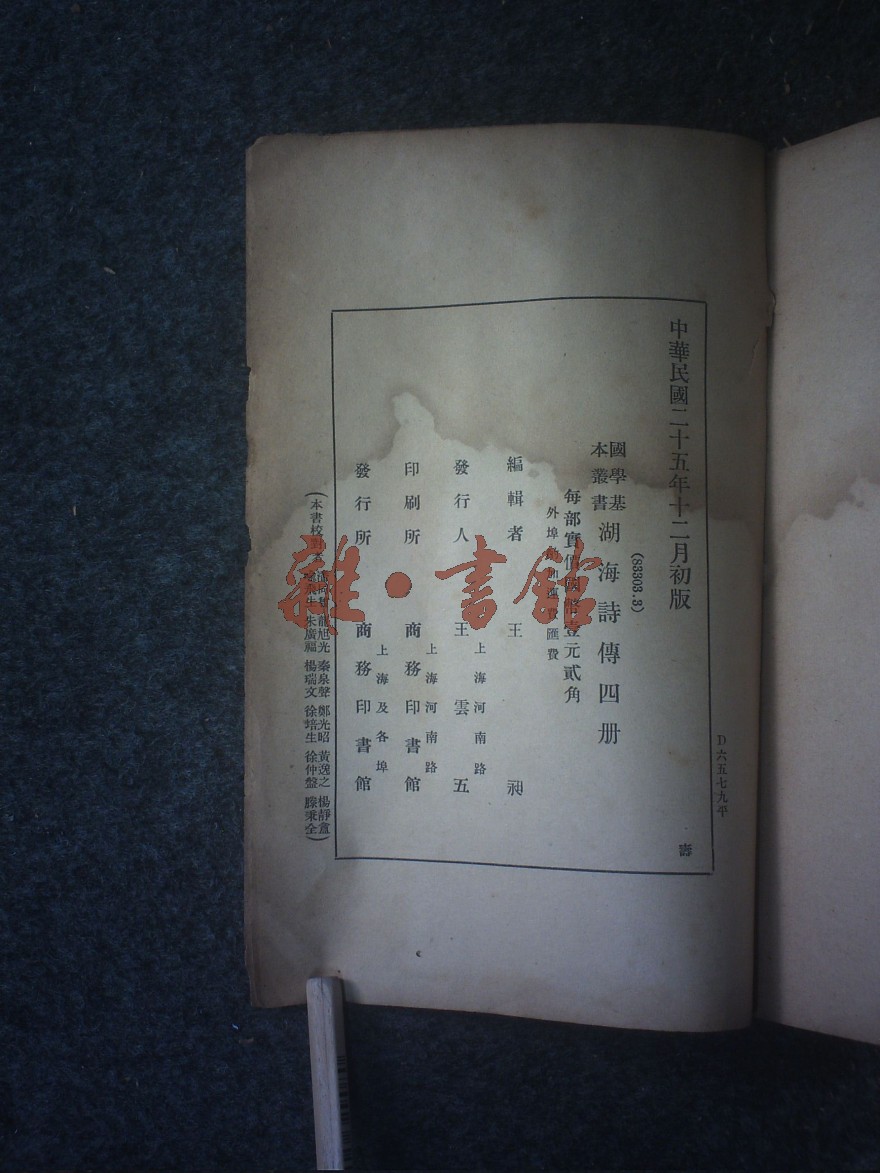 D六五七九平
中華民國二十五年十二月初版
壽
(83303.3)
國學基本叢書 湖海詩傳四册
每部實價國幣壹元貳角
外埠酌加運費匯費
編輯者 王昶
上海河南路
發行人 王雲五
上海河南路
印刷所 商務印書館
上海及各埠
發行所 商務印書館
(本書校對者 龍旭光 秦泉聲 鄭光昭 黃逸之 楊靜盦
朱廣福 楊瑞文 徐培生 徐仲盤 滕秉全)
雜·書館